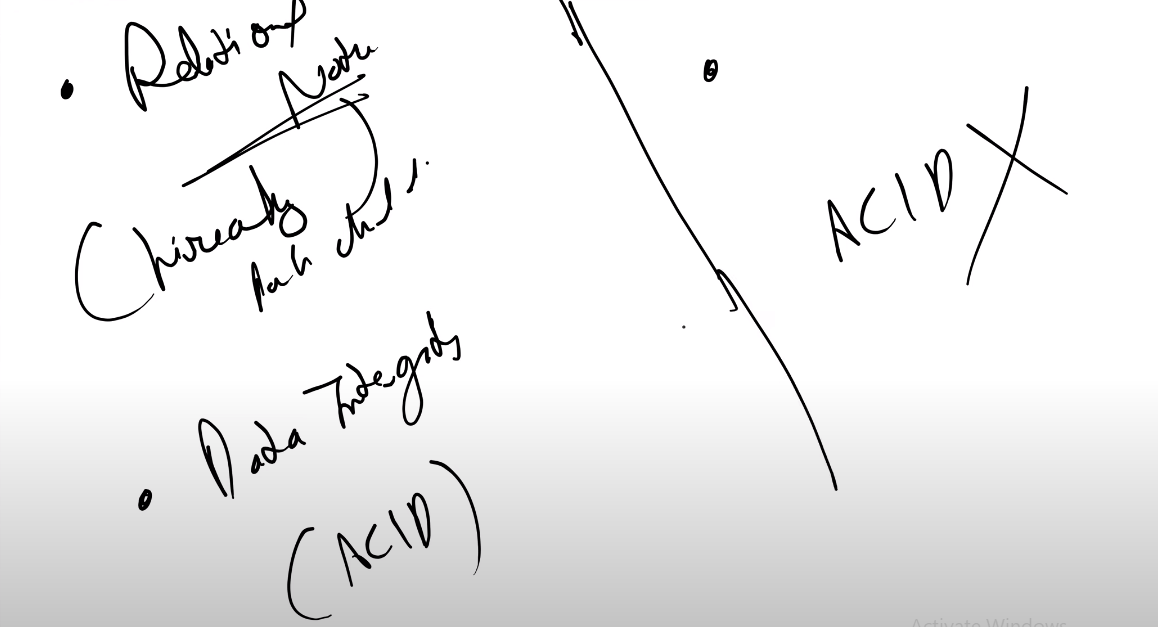 • Relational
Nature
(Hirearchy
parent child)
• Data Integrity
(ACID)
•
ACID X
Activate Windows